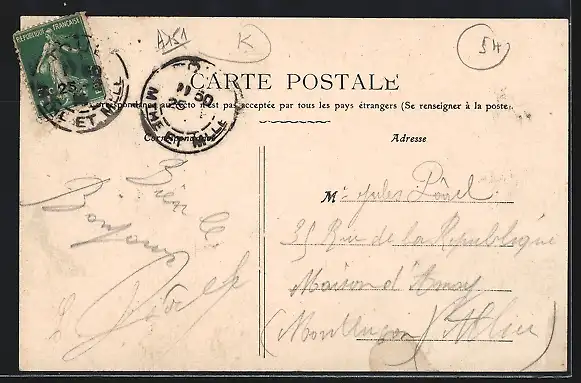 REPUBLIQUE FRANÇAISE
A151
K
54
CARTE POSTALE
Correspondance au recto n'est pas acceptée par tous les pays étrangers (Se renseigner à la poste)
Correspondance
Adresse
MTHE ET MLLE
ET MLLE
Bien le
Bonjour
Mr Jules
35 Rue de la République
Maison d'
(Montluçon) Allier